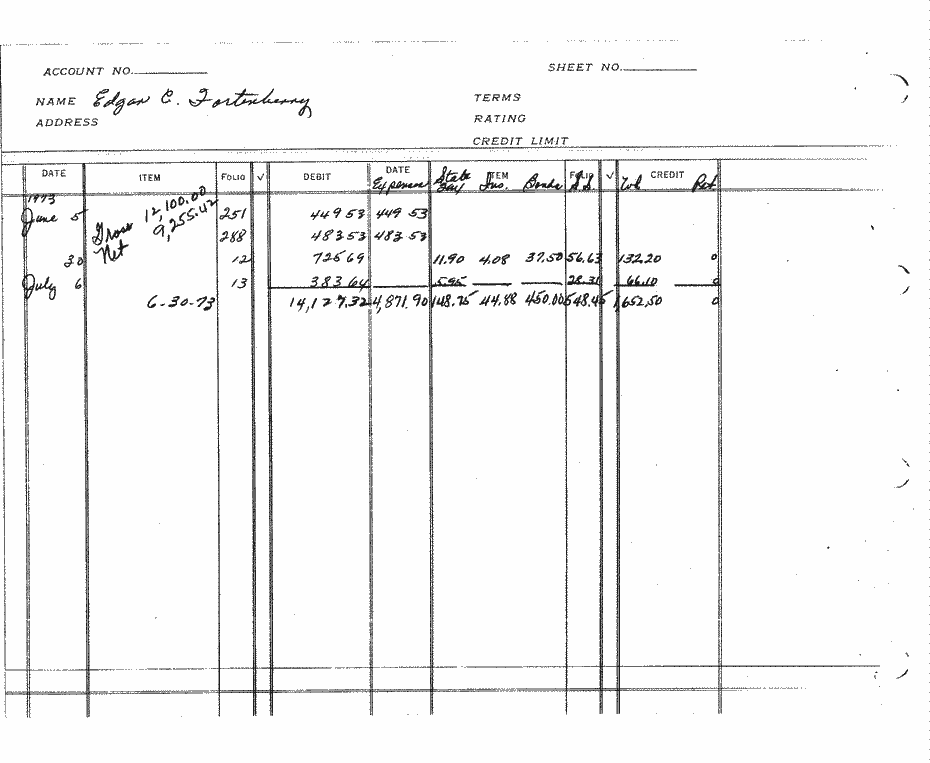 ACCOUNT NO. SHEET NO.
NAME Edgar C. Fortenberry TERMS
ADDRESS RATING
CREDIT LIMIT
DATE ITEM FOLIO √ DEBIT DATE ITEM FOLIO √ CREDIT
Expenses State Ins. Bonds S.S W.H Ret
1973
June 5 Gross 12,100.00 251 449 53 449 53
Net 9,255.42 288 483 53 483 53
30 12 725 69 11.90 4.08 37.50 56.63 132.20 0
July 6 13 383 64 5.95 28.31 66.10 0
6-30-73 14,127.32 4,871.90 148.75 44.88 450.00 548.45 1652.50 0